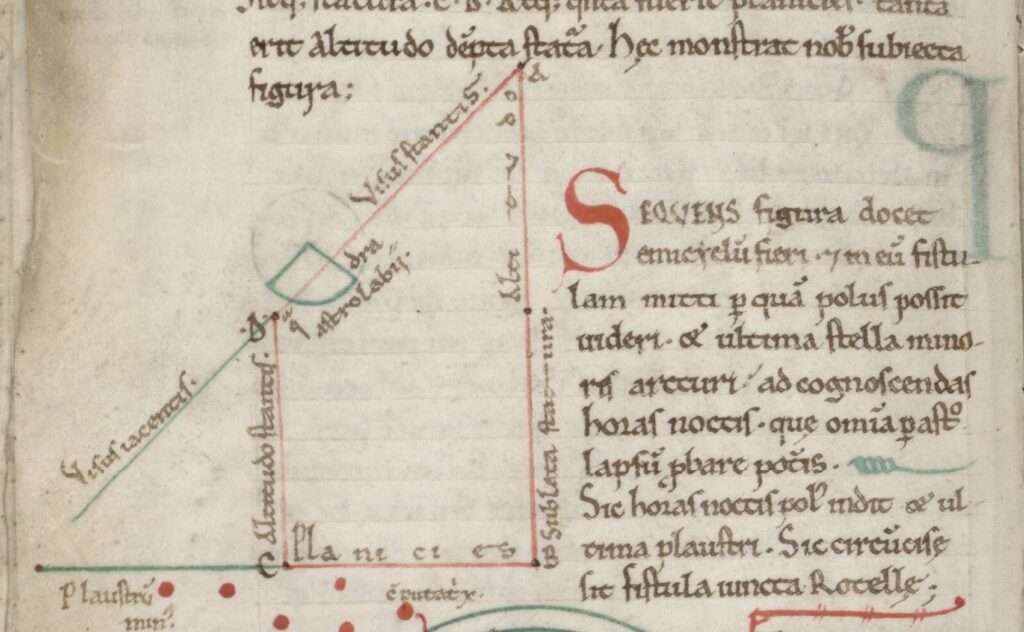 erit altitudo dēpta stat̄a. Hęc monstrat nob̄ subiecta
figura;
A
Visus stantis.
Alti
quadra
astrolabii
D
Visus iacentis.
Altitudo stantis.
Sublata statura.
C
Planicies
B
Plaustrū
min᷒.
SEQUENS figura docet
semicyclū fieri. ⁊ in eū fistu-
lam mitti ꝑ quā polus possit
uideri. & ultima stella mino-
ris arcturi. ad cognoscendas
horas noctis. que omīa ꝑ ast᷒o
lapsū ꝓbare pot᷒is.
Sic horas noctis pol᷒ indit & ul-
tima plaustri. Sic circūcise
sit fistula iuncta Rotellę;